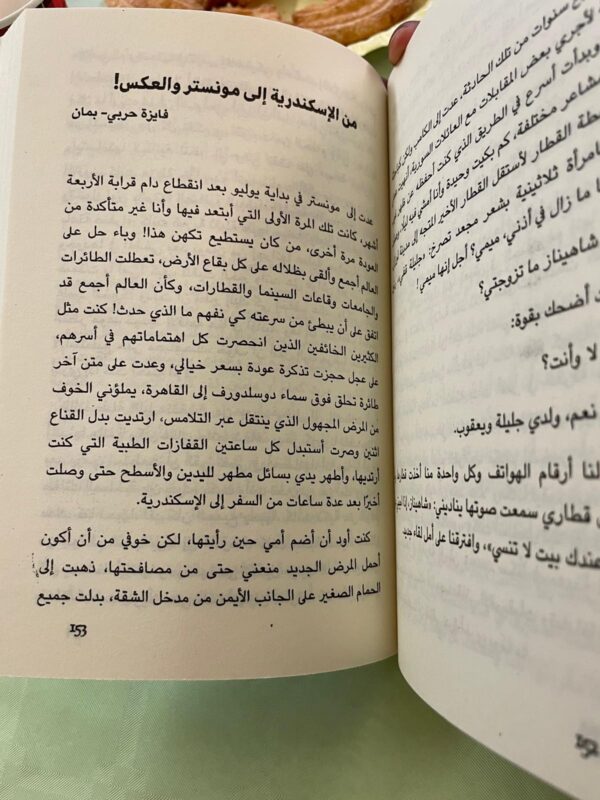 سنوات من تلك الحادثة، عدت إلى
لأجري بعض المقابلات مع العائلات السورية
وبدأت أسرع في الطريق الذي كنت أحفظه عن
مشاعر مختلفة، كم بكيت وحيدة وأنا أمشي فيه
محطة القطار لأستقل القطار الأخير المتجه إلى
امرأة ثلاثينية بشعر مجعد تصرخ: «جليلة
ما زال في أذني، ميمي؟ أجل إنها ميمي!
شاهيناز ما تزوجتي؟
أضحك بقوة:
لا وأنت؟
نعم، ولدي جليلة ويعقوب.
لنا أرقام الهواتف وكل واحدة منا أخذت
قطاري سمعت صوتها يناديني: «شاهيناز،
عندك بيت لا تنسي»، وافترقنا على أمل لقاء
152
من الإسكندرية إلى مونستر والعكس!
فايزة حربي- بمان
عدت إلى مونستر في بداية يوليو بعد انقطاع دام قرابة الأربعة
أشهر، كانت تلك المرة الأولى التي أبتعد فيها وأنا غير متأكدة من
العودة مرة أخرى، من كان يستطيع تكهن هذا! وباء حل على
العالم أجمع وألقى بظلاله على كل بقاع الأرض، تعطلت الطائرات
والجامعات وقاعات السينما والقطارات، وكأن العالم أجمع قد
اتفق على أن يبطئ من سرعته كي نفهم ما الذي حدث! كنت مثل
الكثيرين الخائفين الذين انحصرت كل اهتماماتهم في أسرهم،
على عجل حجزت تذكرة عودة بسعر خيالي، وعدت على متن آخر
طائرة تحلق فوق سماء دوسلدورف إلى القاهرة، يملؤني الخوف
من المرض المجهول الذي ينتقل عبر التلامس، ارتديت بدل القناع
اثنين وصرت أستبدل كل ساعتين القفازات الطبية التي كنت
أرتديها، وأطهر يدي بسائل مطهر لليدين والأسطح حتى وصلت
أخيرًا بعد عدة ساعات من السفر إلى الإسكندرية.
كنت أود أن أضم أمي حين رأيتها، لكن خوفي من أن أكون
أحمل المرض الجديد منعني حتى من مصافحتها، ذهبت إلى
الحمام الصغير على الجانب الأيمن من مدخل الشقة، بدلت جميع
153